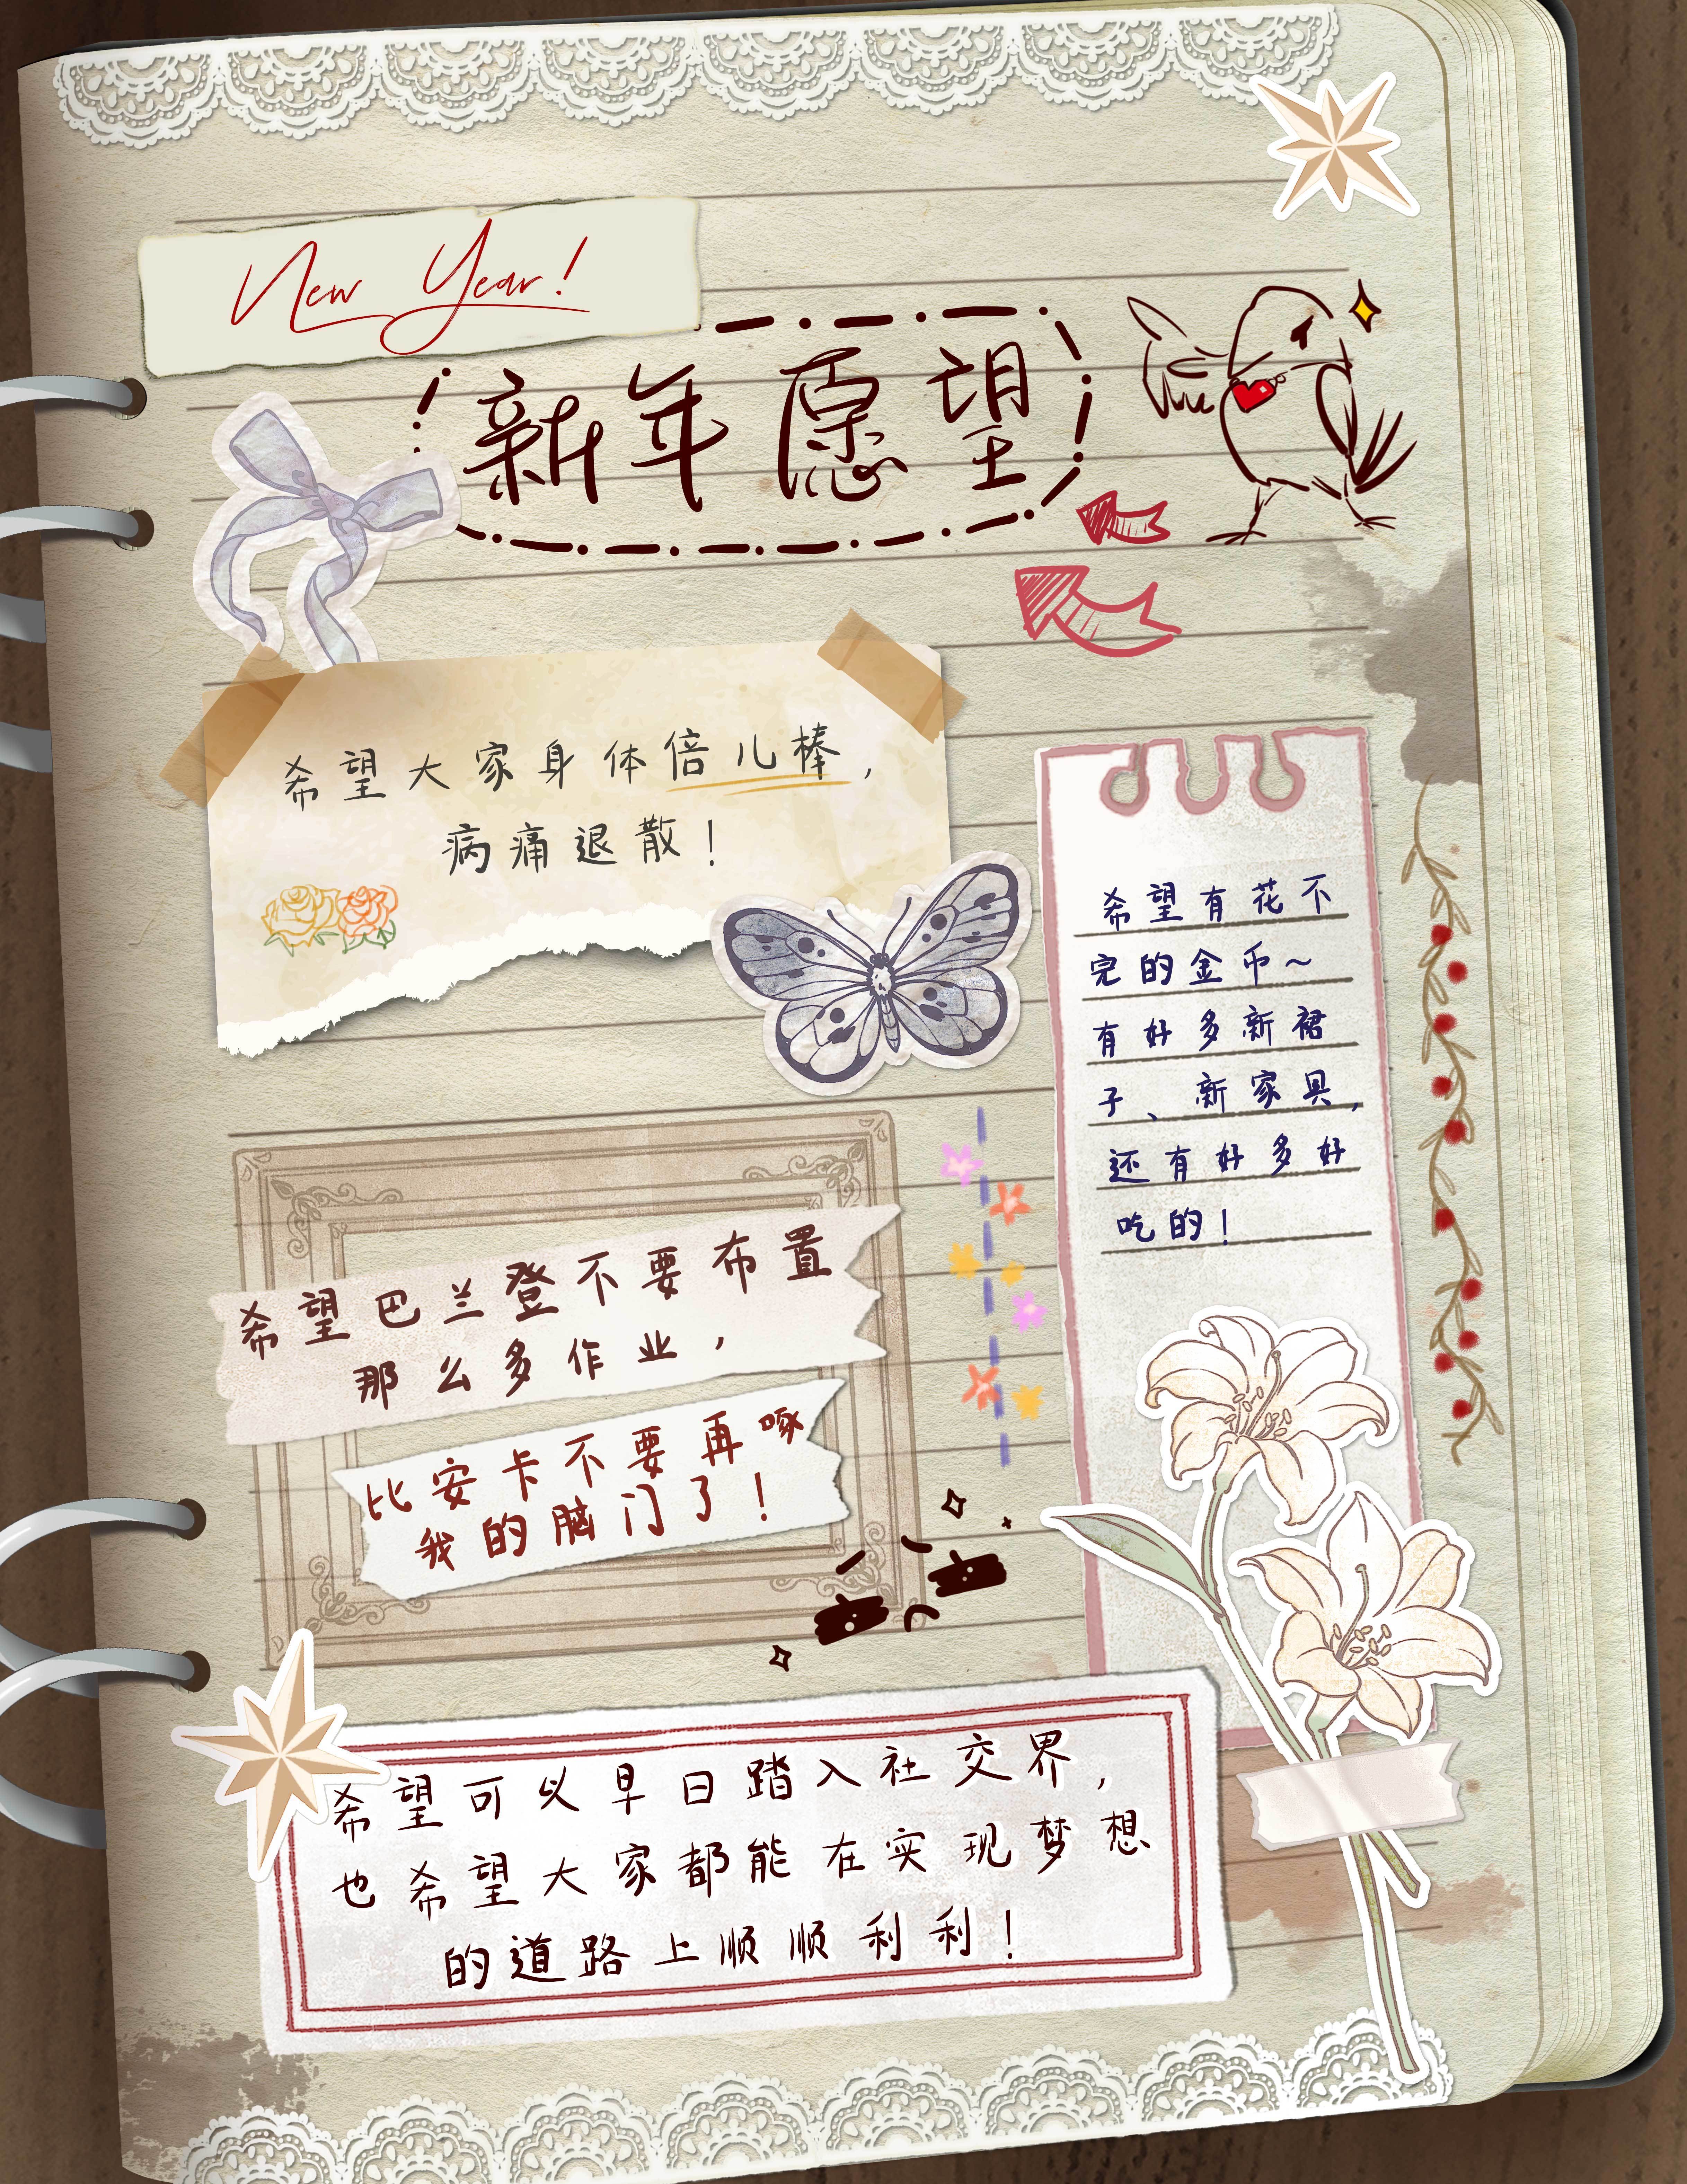 New Year!
新年愿望
希望大家身体倍儿棒，
病痛退散！
希望有花不
完的金币~
有好多新裙
子、新家具，
还有好多好
吃的！
希望巴兰登不要布置
那么多作业，
比安卡不要再啄
我的脑门了！
希望可以早日踏入社交界，
也希望大家都能在实现梦想
的道路上顺顺利利！